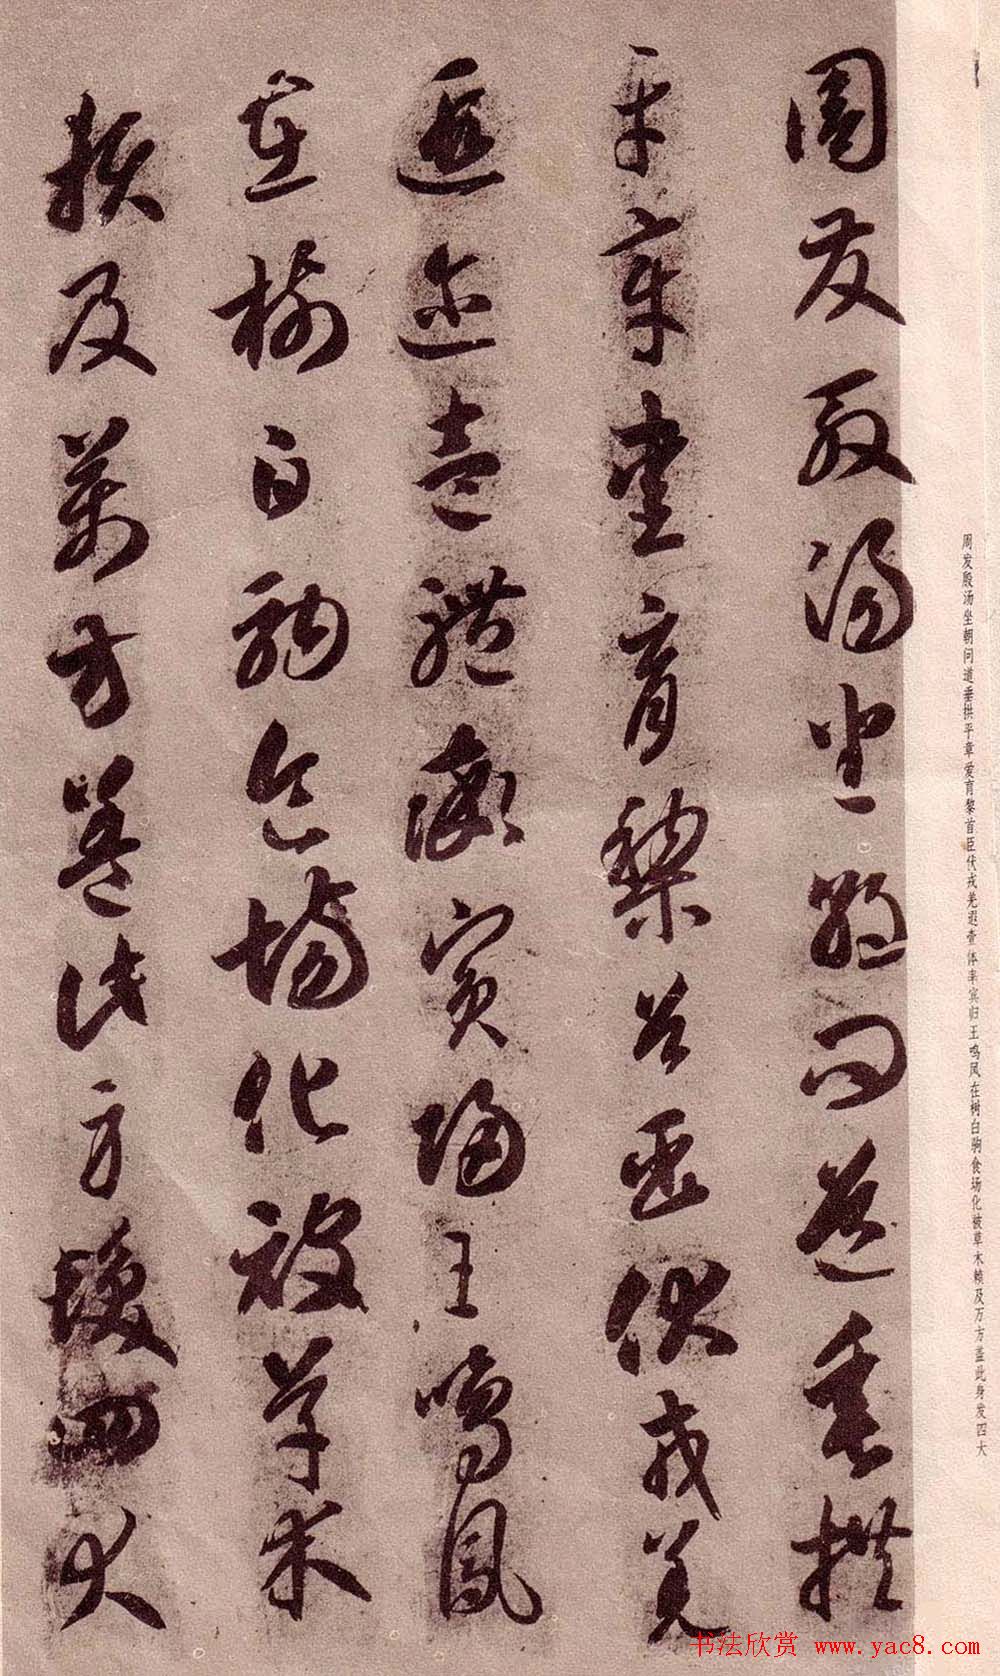 周发殷汤坐朝问道垂拱平章爱育黎首臣伏戎羌遐壹体率宾归王鸣凤在树白驹食场化被草木赖及万方盖此身发四大
周發殷湯坐朝問道垂拱
平章愛育黎首臣伏戎羌
遐迩壹體率賓歸王鳴鳳
在樹白駒食場化被草木
賴及萬方蓋此身髮四大
书法欣赏 www.yac8.com